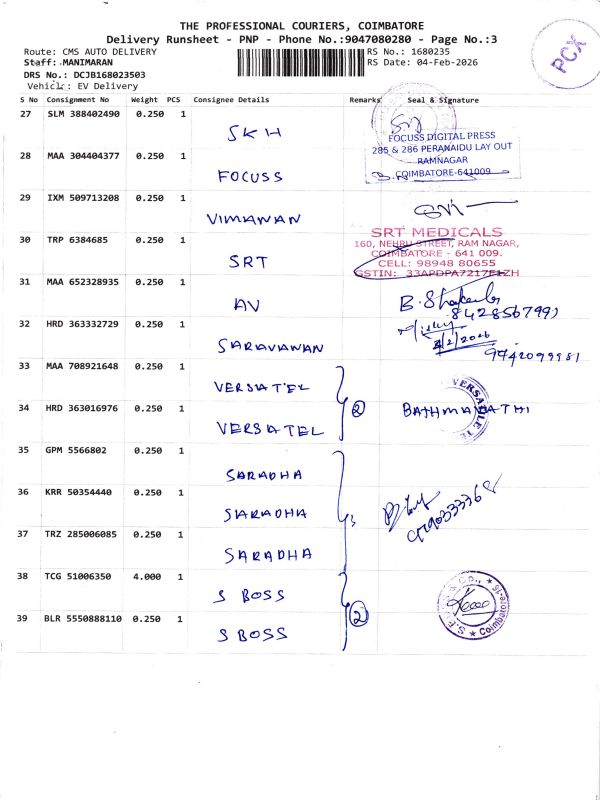 THE PROFESSIONAL COURIERS, COIMBATORE
Delivery Runsheet - PNP - Phone No.:9047080280 - Page No.:3
Route: CMS AUTO DELIVERY
RS No.: 1680235
Staff: MANIMARAN
RS Date: 04-Feb-2026
DRS No.: DCJB168023503
Vehicle: EV Delivery
PCX
S No Consignment No Weight PCS Consignee Details Remarks Seal & Signature
27 SLM 388402490 0.250 1 SKH
28 MAA 304404377 0.250 1 FOCUSS
FOCUSS DIGITAL PRESS
285 & 286 PERANAIDU LAY OUT
RAMNAGAR
COIMBATORE-641009
29 IXM 509713208 0.250 1 VIMANAN
30 TRP 6384685 0.250 1 SRT
SRT MEDICALS
160, NEHRU STREET, RAM NAGAR,
COIMBATORE - 641 009.
CELL: 98948 80655
GSTIN: 33APDPA7217F1ZH
31 MAA 652328935 0.250 1 AV
8428567991
32 HRD 363332729 0.250 1 SARAVANAN
4/2/2026
9442099981
33 MAA 708921648 0.250 1 VERSATEL
34 HRD 363016976 0.250 1 VERSATEL
2
BATHMAVATHI
35 GPM 5566802 0.250 1 SARADHA
36 KRR 50354440 0.250 1 SARADHA
37 TRZ 285006085 0.250 1 SARADHA
3
38 TCG 51006350 4.000 1 S BOSS
39 BLR 5550888110 0.250 1 S BOSS
2
Coimbatore